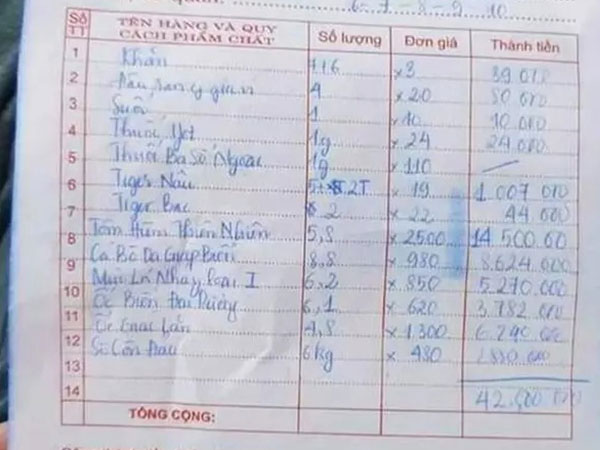 6 - 7 - 8 - 9 10
Số TT TÊN HÀNG VÀ QUY CÁCH PHẨM CHẤT Số lượng Đơn giá Thành tiền
1 Khăn 7+6 x3 39.000
2 4 x20 80.000
3 Suối 1 x10 10.000
4 Thuốc Jet 1g x24 24.000
5 Thuốc Ba Số Ngoại 1g x110
6 Tiger Nâu 2T x19 1.007.000
7 Tiger Bạc 2 x22 44.000
8 Tôm Hùm Thiên Nhiên 5,8 x2500 14.500.00
9 Cá Bò Da Giáp Biển 8,8 x980 8.624.000
10 Mực Lá Nháy Loại I 6,2 x850 5.270.000
11 Ốc Biển 6,1 x620 3.782.000
12 Ốc Lần 4,8 x1.300 6.240.000
13 Sò Côn Đảo 6kg x480 2.880.000
14 42.500.000
TỔNG CỘNG: